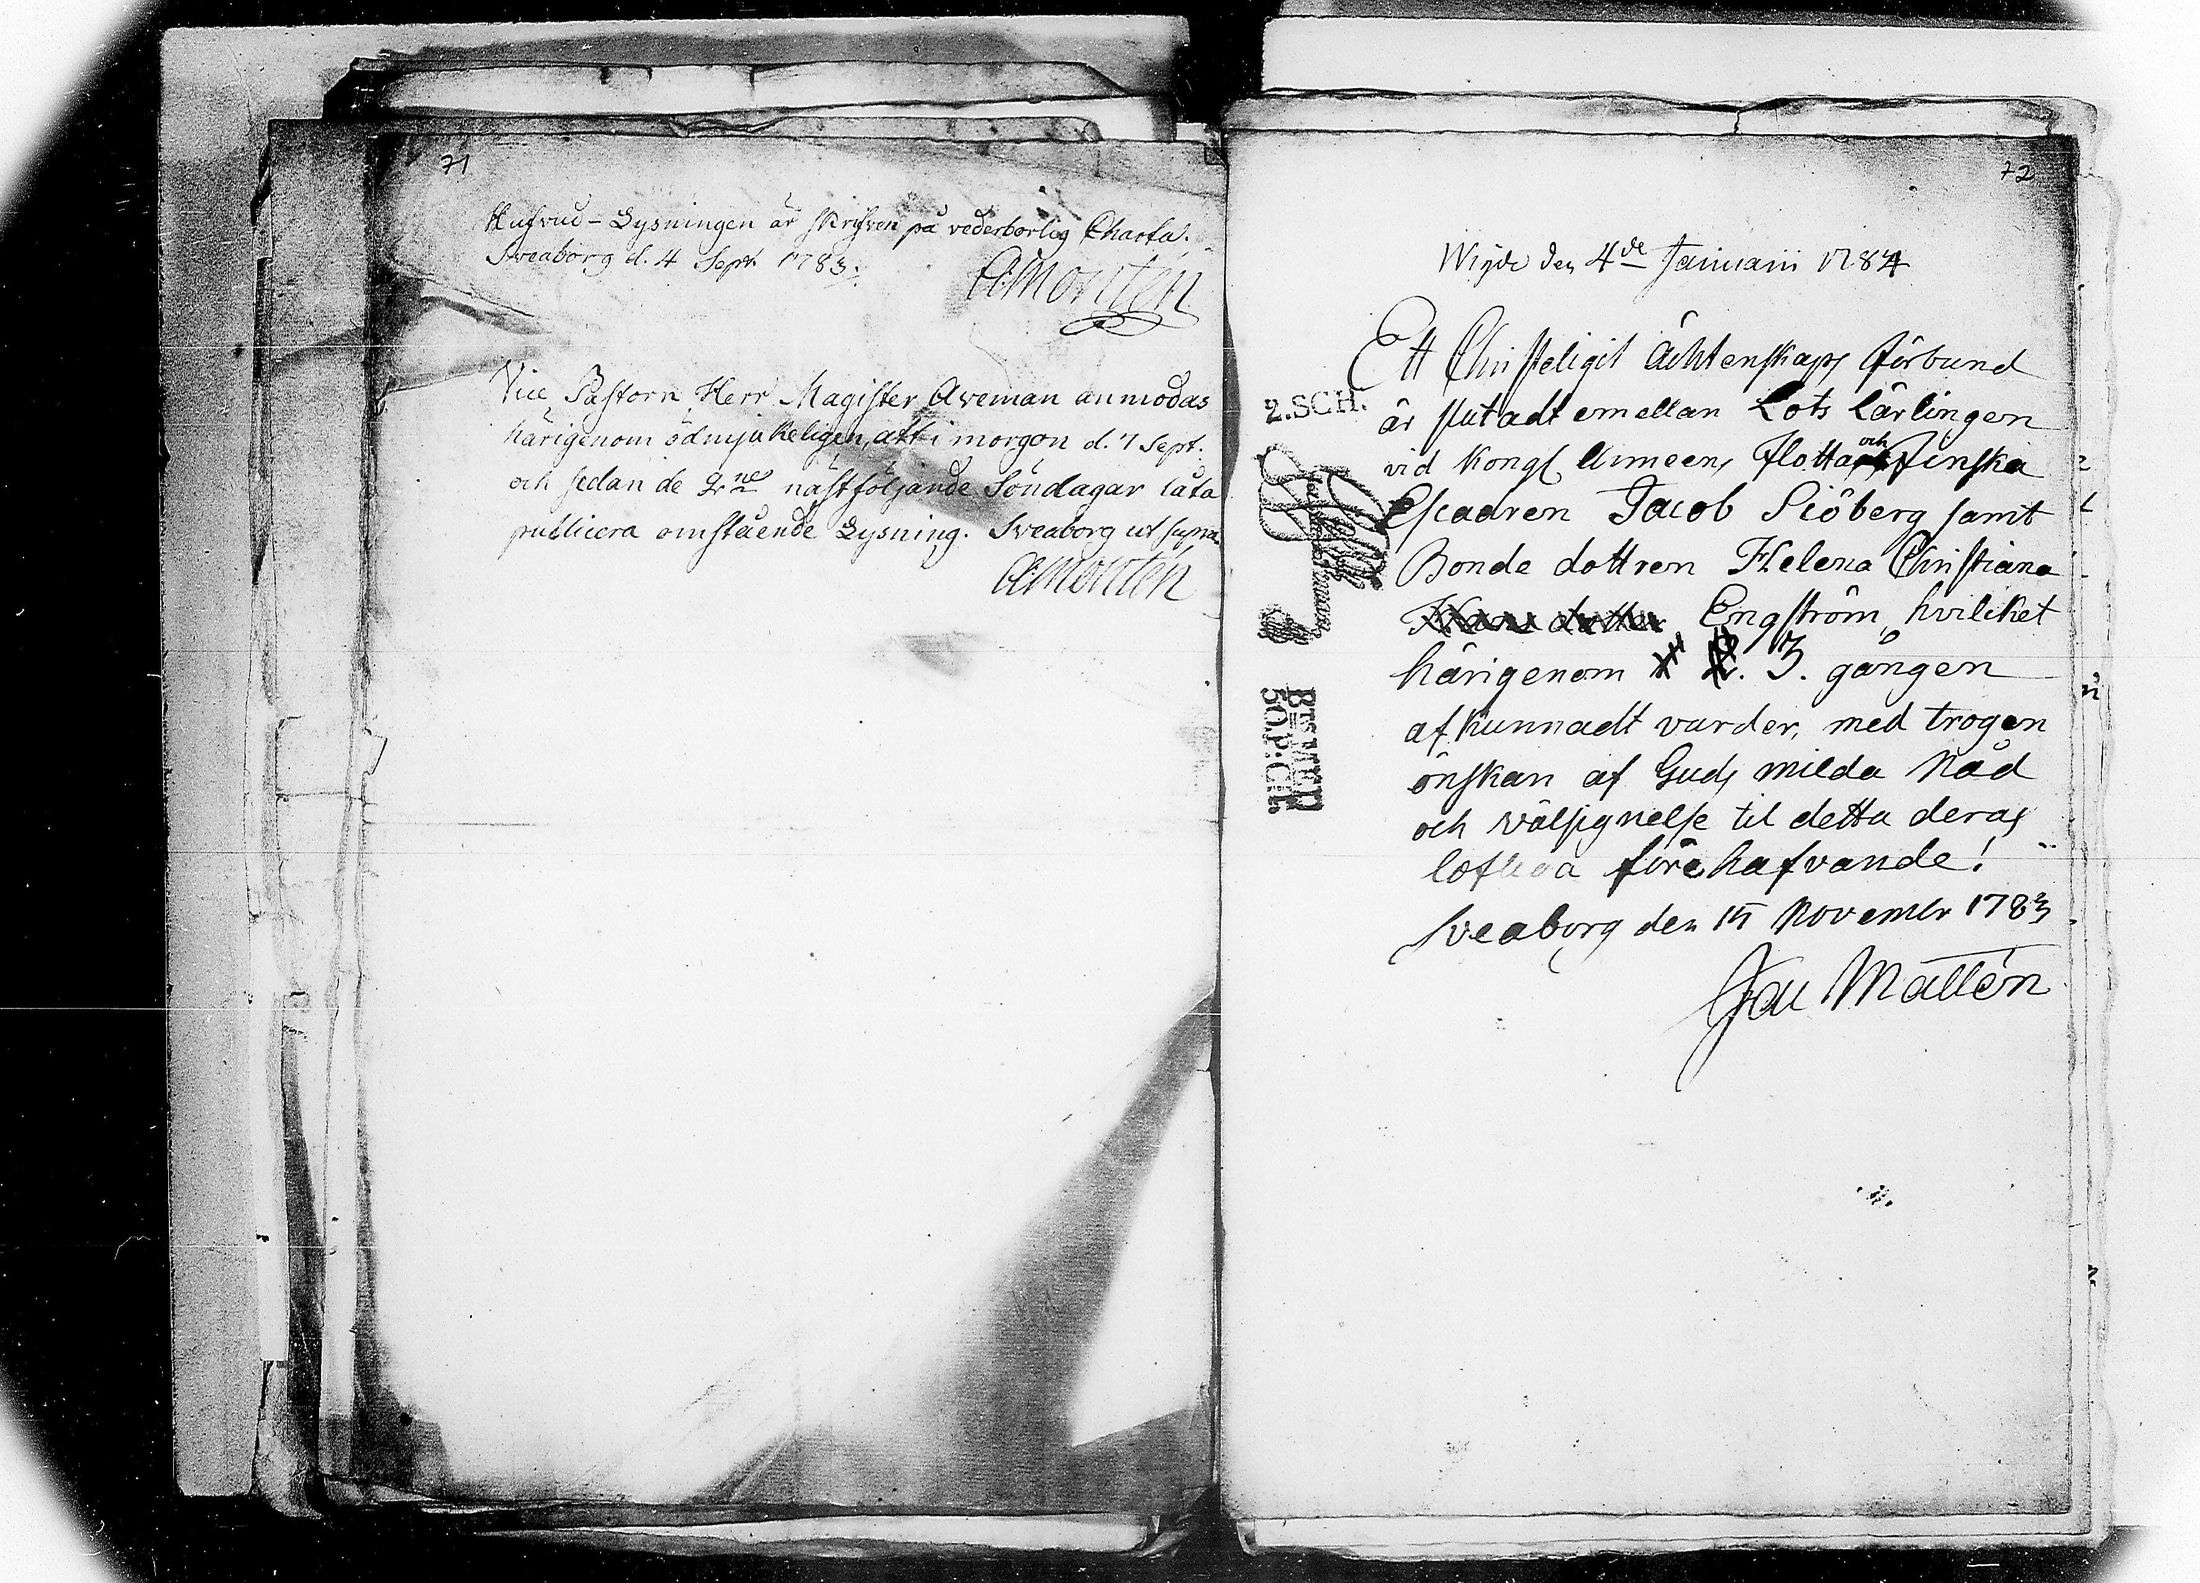 71
Hufvud-Lysningen är skrifven på vederbörlig Charta.
Sveaborg d. 4 Sept. 1783.
Vice Pastorn Herr Magister Aveman anmodas
härigenom ödmjukeligen, att i morgon d. 7 Sept.
och sedan de 2ne nästföljande Söndagar låta
publicera omstående Lysning. Sveaborg ut supra
72
Wigde den 4de Januarii 1784
Ett Christeligit Ächtenskaps förbund
2.SCH.
är slutadt emellan Lots Lärlingen
vid Kongl Armeens Flotta och Finska
Escadren Jacob Siöberg samt
Bonde dottren Helena Christiana
Engström, hvilcket
härigenom 3. gången
afkunnadt varder, med trogen
önskan af Guds milda Nåd
och välsignelse til detta deras
lofliga förehafvande!
Sveaborg den 15 November 1783
Mallén